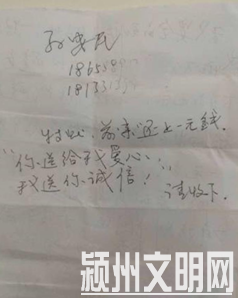 孙安民
特此，前来还上一元钱。
"你送给我爱心，
我送你诚信！"
请收下。
颍州文明网